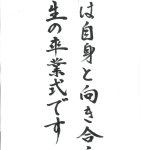 は自身と向き合
生の卒業式です